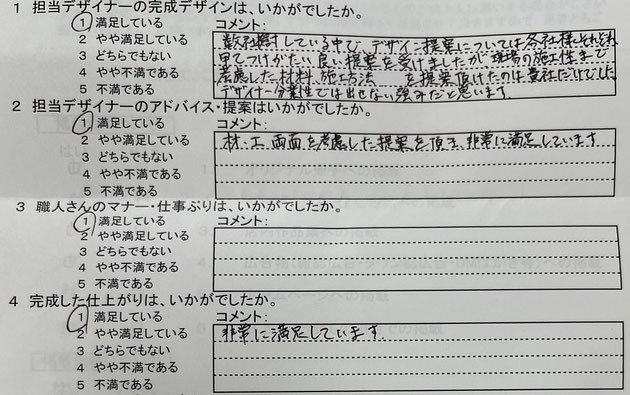 1 担当デザイナーの完成デザインは、いかがでしたか。
1 満足している
2 やや満足している
3 どちらでもない
4 やや不満である
5 不満である
コメント:
数社検討している中で、デザイン提案については各社様それぞれ
甲乙つけがたい良い提案を受けましたが現場の施工性まで
考慮した材料、施工方法 を提案頂けたのは貴社だけでした
デザイナー分業性では出せない強みだと思います
2 担当デザイナーのアドバイス・提案はいかがでしたか。
1 満足している
2 やや満足している
3 どちらでもない
4 やや不満である
5 不満である
コメント:
材・工、両面を考慮した提案を頂き、非常に満足しています
3 職人さんのマナー・仕事ぶりは、いかがでしたか。
1 満足している
2 やや満足している
3 どちらでもない
4 やや不満である
5 不満である
コメント:
4 完成した仕上がりは、いかがでしたか。
1 満足している
2 やや満足している
3 どちらでもない
4 やや不満である
5 不満である
コメント:
非常に満足しています